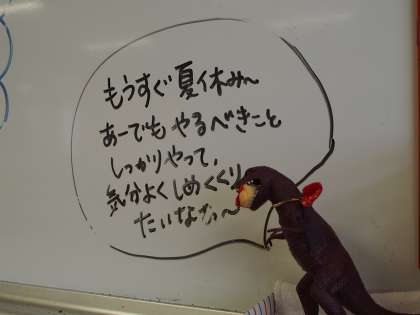 もうすぐ夏休み〜
あーでもやるべきこと
しっかりやって、
気分よくしめくくり
たいなぁ〜